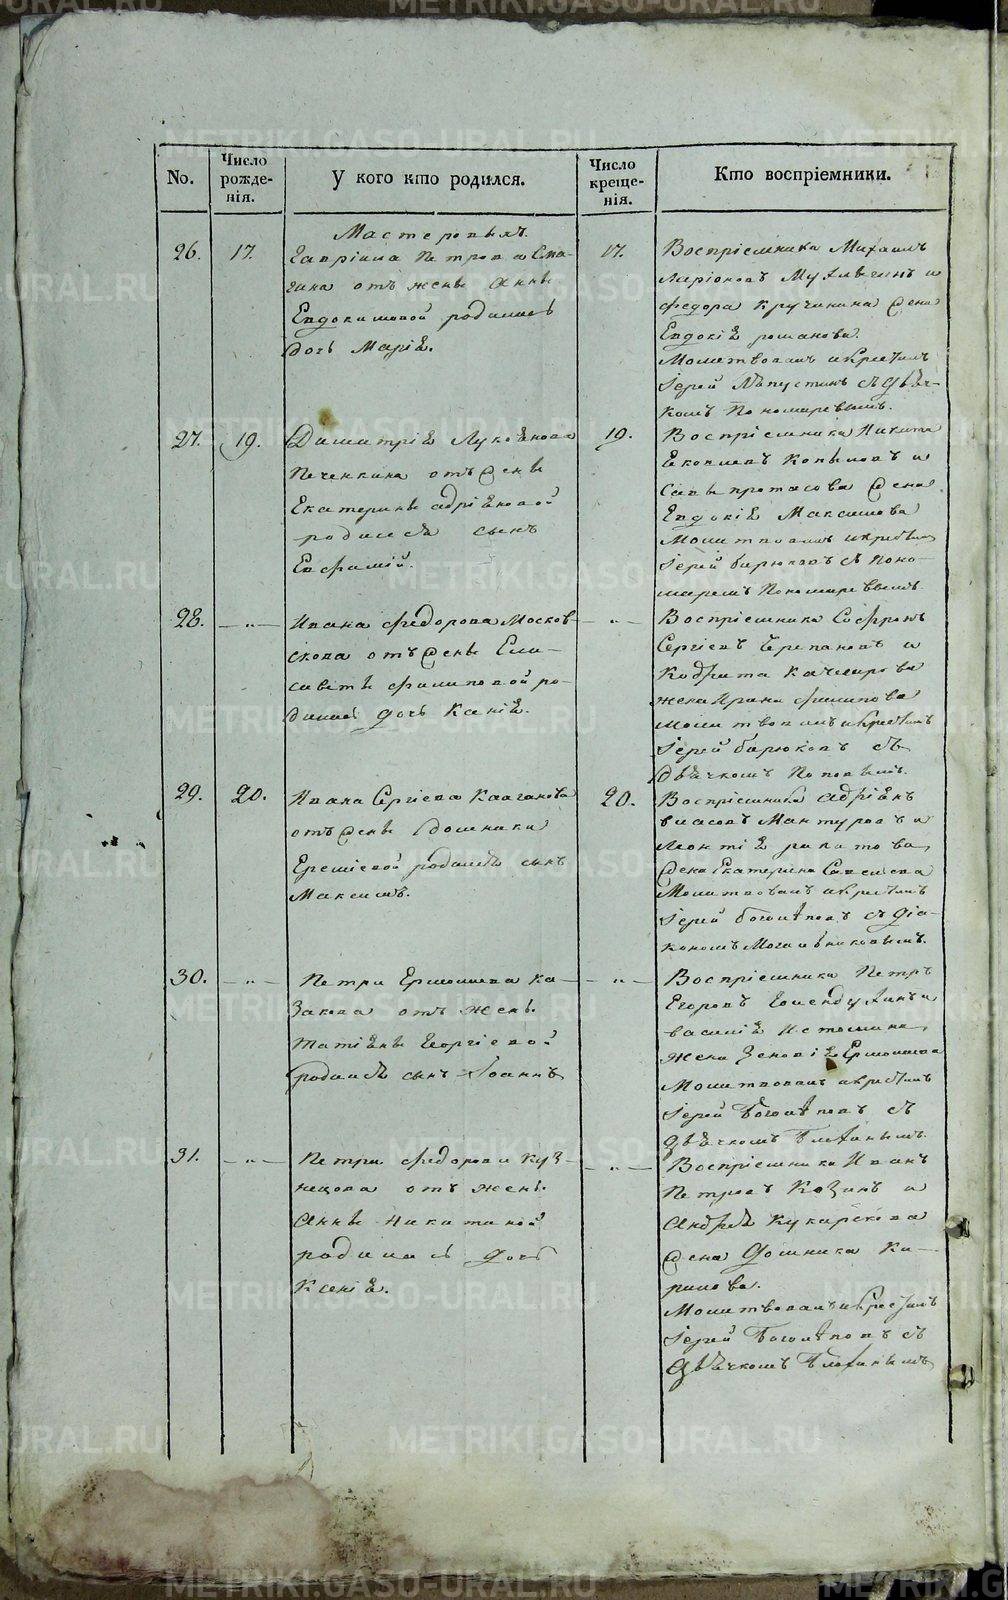 No.
Число рожде-нія.
У кого кто родился.
Число креще-нія.
Кто воспріемники.
Мастеровыхъ.
26.
17.
Гавріила Петрова Сма-
гина отъ жены Анны
Евдокимовой родилась
дочь Марія.
17.
Воспріемники Михаилъ
Ларіоновъ и
Федора Кручинина жена
Евдокія романова.
Молитвовалъ и крестилъ
Іерей Лапустинъ съ дья-
комъ Пономаревымъ.
27.
19.
Димитрія Лукоянова
Печенкина отъ жены
Екатерины адріановой
родился сынъ
Евфимій.
19.
Воспріемники Никита
Яковлевъ Копыловъ и
Савы протасова жена
Евдокія Максимова
Молитвовалъ и крестилъ
Іерей бирюковъ съ поно-
маремъ Пономаревымъ
28.
— „ —
Ивана федорова Москов-
скова отъ жены Ели-
саветы филиповой ро-
дилась дочь Ксенія.
— „ —
Воспріемники Софронъ
Сергіевъ Черепановъ и
Кодрата
жена Ирина филипова
молитвовалъ и крестилъ
Іерей бирюковъ съ
дьячкомъ Поповымъ.
29.
20.
Ивана Сергіева Калганова
отъ жены домники
Еремѣевой родился сынъ
Максимъ.
20.
Воспріемники адріанъ
власовъ Мантуровъ и
леонтія
жена Екатерина Савельева
Молитвовалъ и крестилъ
Іерей боголѣповъ съ діа-
кономъ Могильниковымъ.
30.
— „ —
Петра Ермолаева Ка-
закова отъ жены
татіаны Георгіевой
родился сынъ Іоаннъ
— „ —
Воспріемники Петръ
Егоровъ и
василія Истомина
жена Зеновія Ермолаева
Молитвовалъ и крестилъ
Іерей Боголѣповъ съ
дьячкомъ Плотинымъ.
31.
— „ —
Петра федорова Куз-
нецова отъ жены
Анны Никитиной
родилась дочь
Ксенія.
— „ —
Воспріемники Иванъ
Петровъ Козинъ и
Андрея Кукарскова
жена домника Ки-
рилова.
Молитвовалъ и крестилъ
Іерей Боголѣповъ съ
дьячкомъ Плотинымъ
METRIKI.GASO-URAL.RU